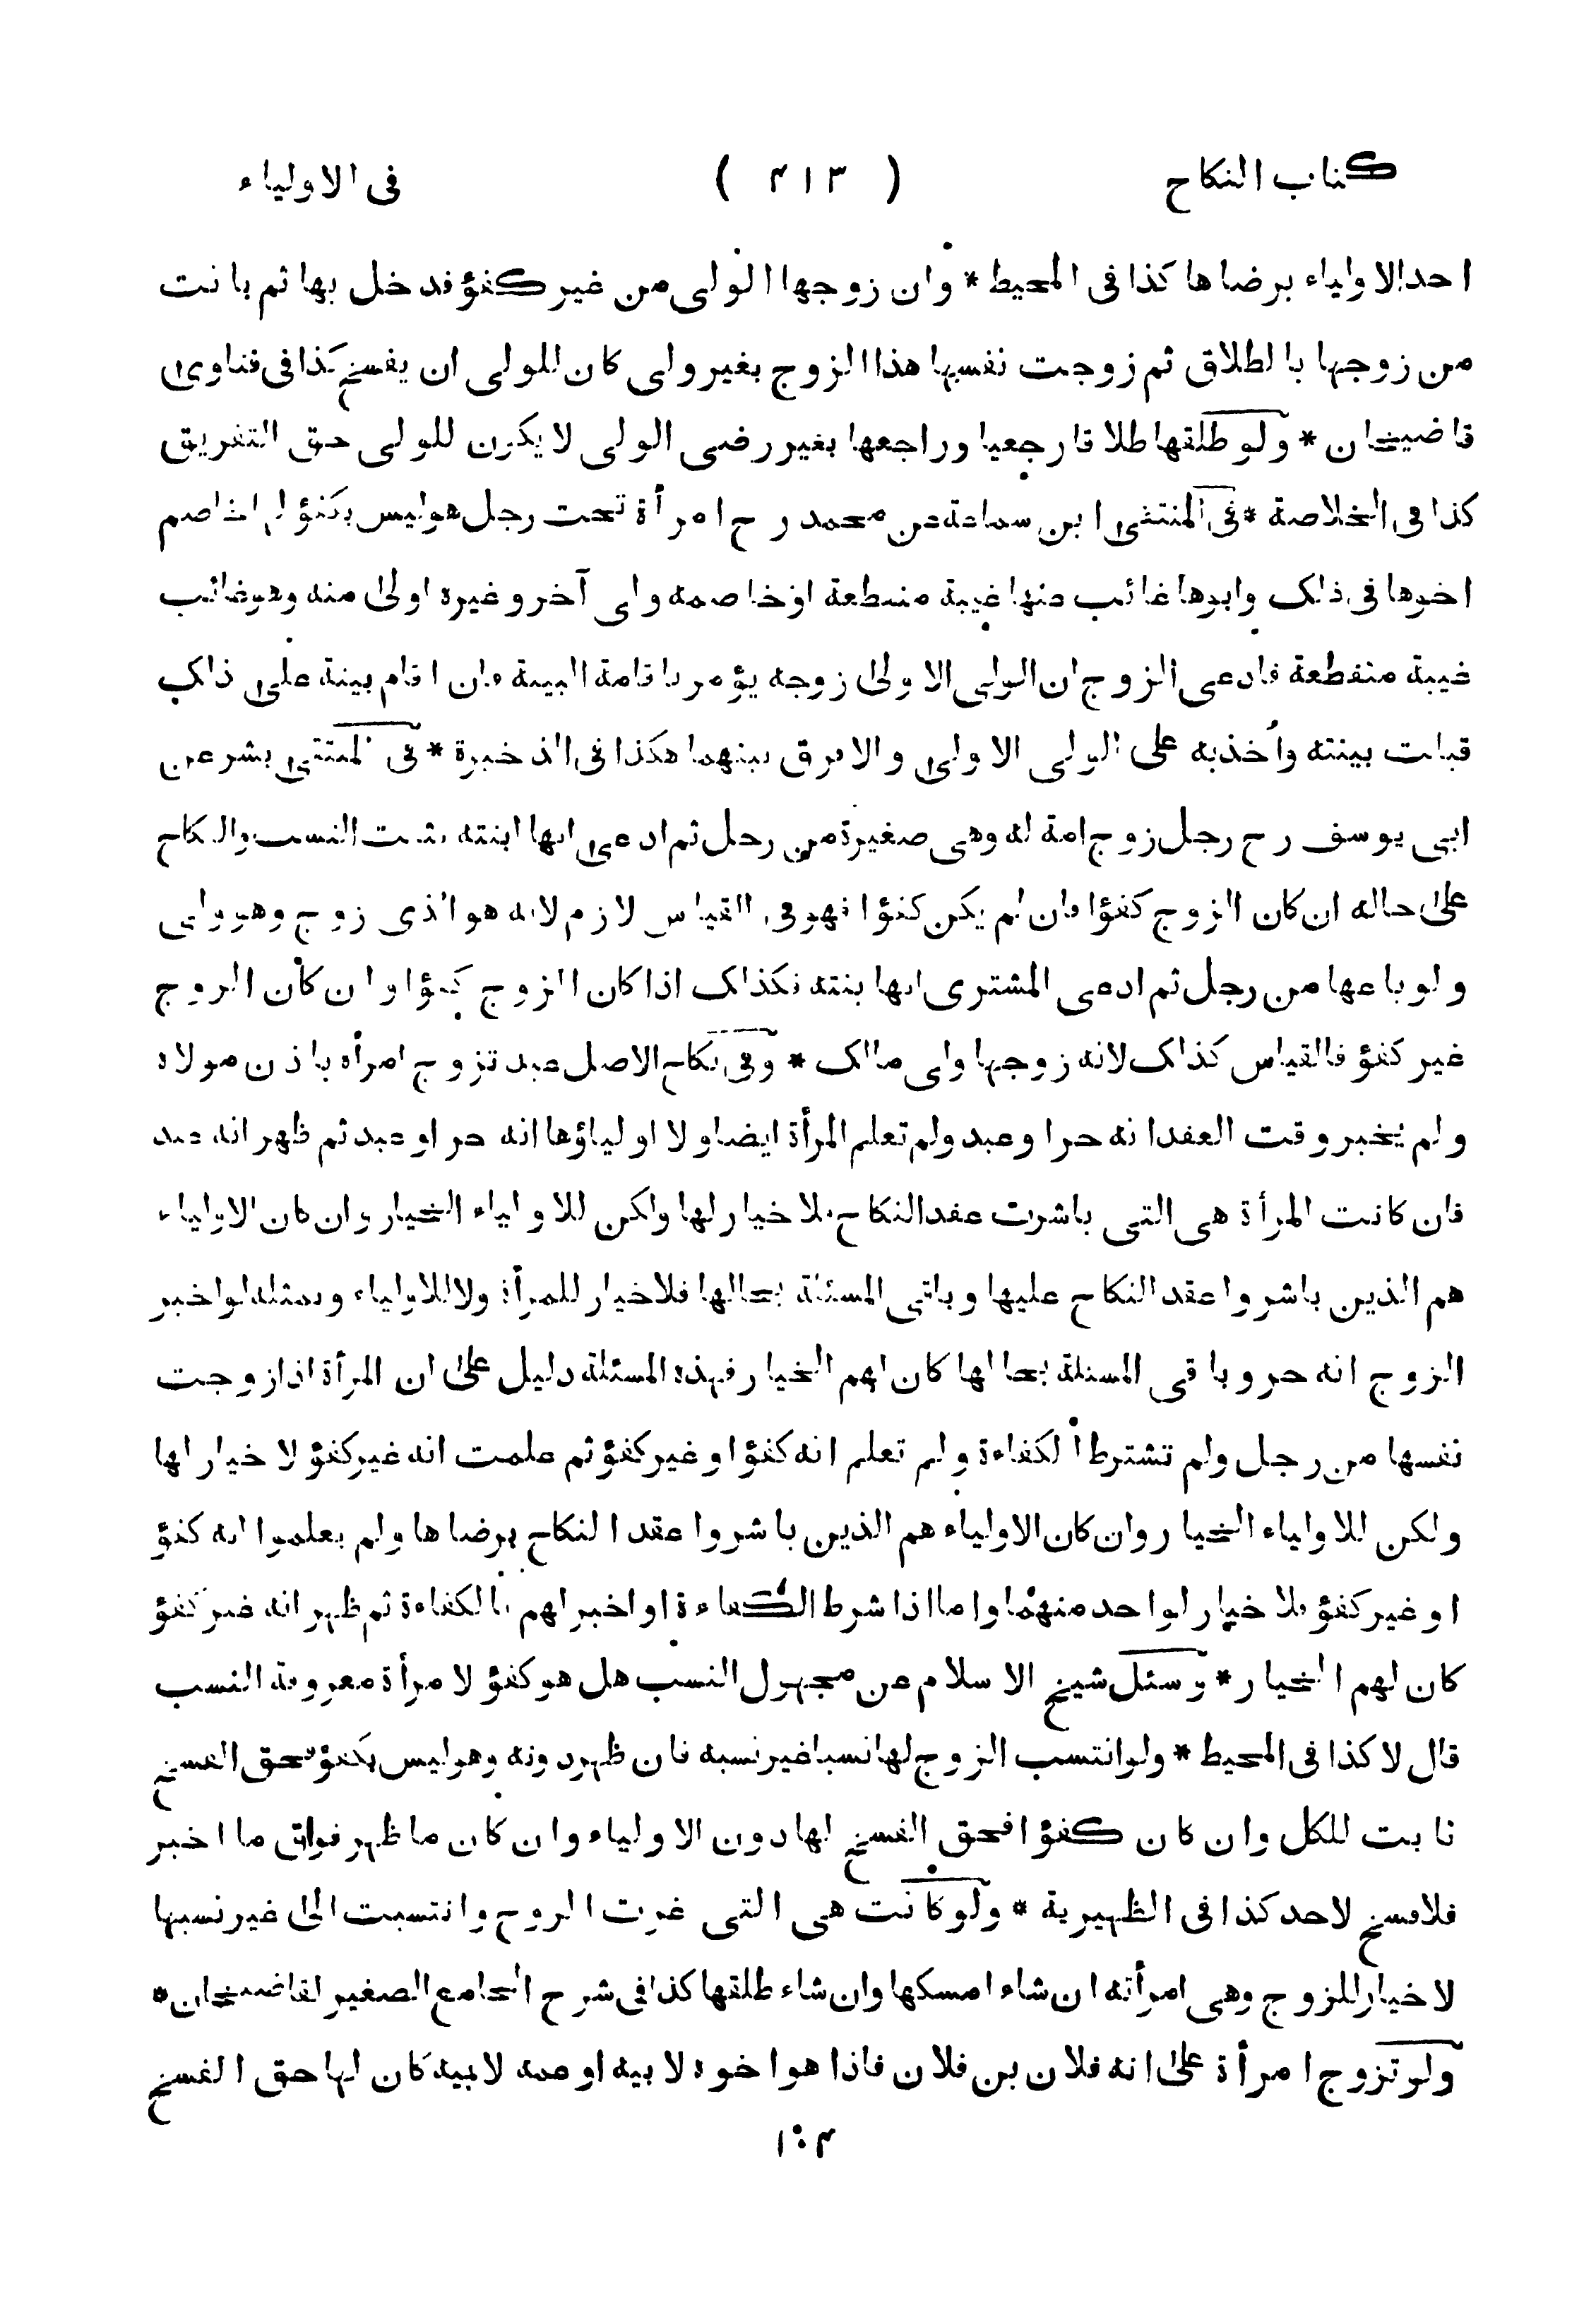 كتاب النكاح ( ٤١٣ ) في الاولياء
احد الاولياء برضاها كذا في المحيط * وان زوجها الولي من غير كفؤ فدخل بها ثم بانت
من زوجها بالطلاق ثم زوجت نفسها هذا الزوج بغير ولي كان للولي ان يفسخ كذا في فتاوى
قاضيخان * ولو طلقها طلاقا رجعيا وراجعها بغير رضى الولي لا يكون للولي حق التفريق
كذا في الخلاصة * في المنتقى ابن سماعة عن محمد رح امرأة تحت رجل هو ليس بكفؤ لها خاصم
اخوها في ذلك وابوها غائب عنها غيبة منقطعة او خاصمه ولي آخر وغيره اولى منه وهو غائب
غيبة منقطعة فادعى الزوج ان الولي الاولى زوجه يؤمر باقامة البينة فان اقام بينة على ذلك
قبلت بينته وأخذ به على الولي الاولى والا فرق بينهما هكذا في الذخيرة * في المنتقى بشر عن
ابي يوسف رح رجل زوج امة له وهي صغيرة من رجل ثم ادعى انها ابنته يثبت النسب والنكاح
على حاله ان كان الزوج كفؤا وان لم يكن كفؤا فهو في القياس لازم لانه هو الذي زوج وهو ولي
ولو باعها من رجل ثم ادعى المشتري انها بنته فكذلك اذا كان الزوج كفؤا وان كان الزوج
غير كفؤ فالقياس كذلك لانه زوجها ولي مالك * وفي نكاح الاصل عبد تزوج امرأة باذن مولاه
ولم يخبر وقت العقد انه حر او عبد ولم تعلم المرأة ايضا ولا اولياؤها انه حر او عبد ثم ظهر انه عبد
فان كانت المرأة هي التي باشرت عقد النكاح فلا خيار لها ولكن للاولياء الخيار وان كان الاولياء
هم الذين باشروا عقد النكاح عليها وباقي المسئلة بحالها فلا خيار للمرأة ولا للاولياء وبمثله لو اخبر
الزوج انه حر وباقي المسئلة بحالها كان لهم الخيار فهذه المسئلة دليل على ان المرأة اذا زوجت
نفسها من رجل ولم تشترط الكفاءة ولم تعلم انه كفؤ او غير كفؤ ثم علمت انه غير كفؤ لا خيار لها
ولكن للاولياء الخيار وان كان الاولياء هم الذين باشروا عقد النكاح برضاها ولم يعلموا انه كفؤ
او غير كفؤ فلا خيار لواحد منهما واما اذا شرط الكفاءة او اخبر لهم بالكفاءة ثم ظهر انه غير كفؤ
كان لهم الخيار * وسئل شيخ الاسلام عن مجهول النسب هل هو كفؤ لامرأة معروفة النسب
قال لا كذا في المحيط * ولو انتسب الزوج لها نسبا غير نسبه فان ظهر دونه وهو ليس بكفؤ فحق الفسخ
ثابت للكل وان كان كفؤا فحق الفسخ لها دون الاولياء وان كان ما ظهر فوق ما اخبر
فلا فسخ لاحد كذا في الظهيرية * ولو كانت هي التي غرت الزوج وانتسبت الى غير نسبها
لا خيار للزوج وهي امرأته ان شاء امسكها وان شاء طلقها كذا في شرح الجامع الصغير لقاضيخان *
ولو تزوج امرأة على انه فلان بن فلان فاذا هو اخوه لابيه او عمه لابيه كان لها حق الفسخ